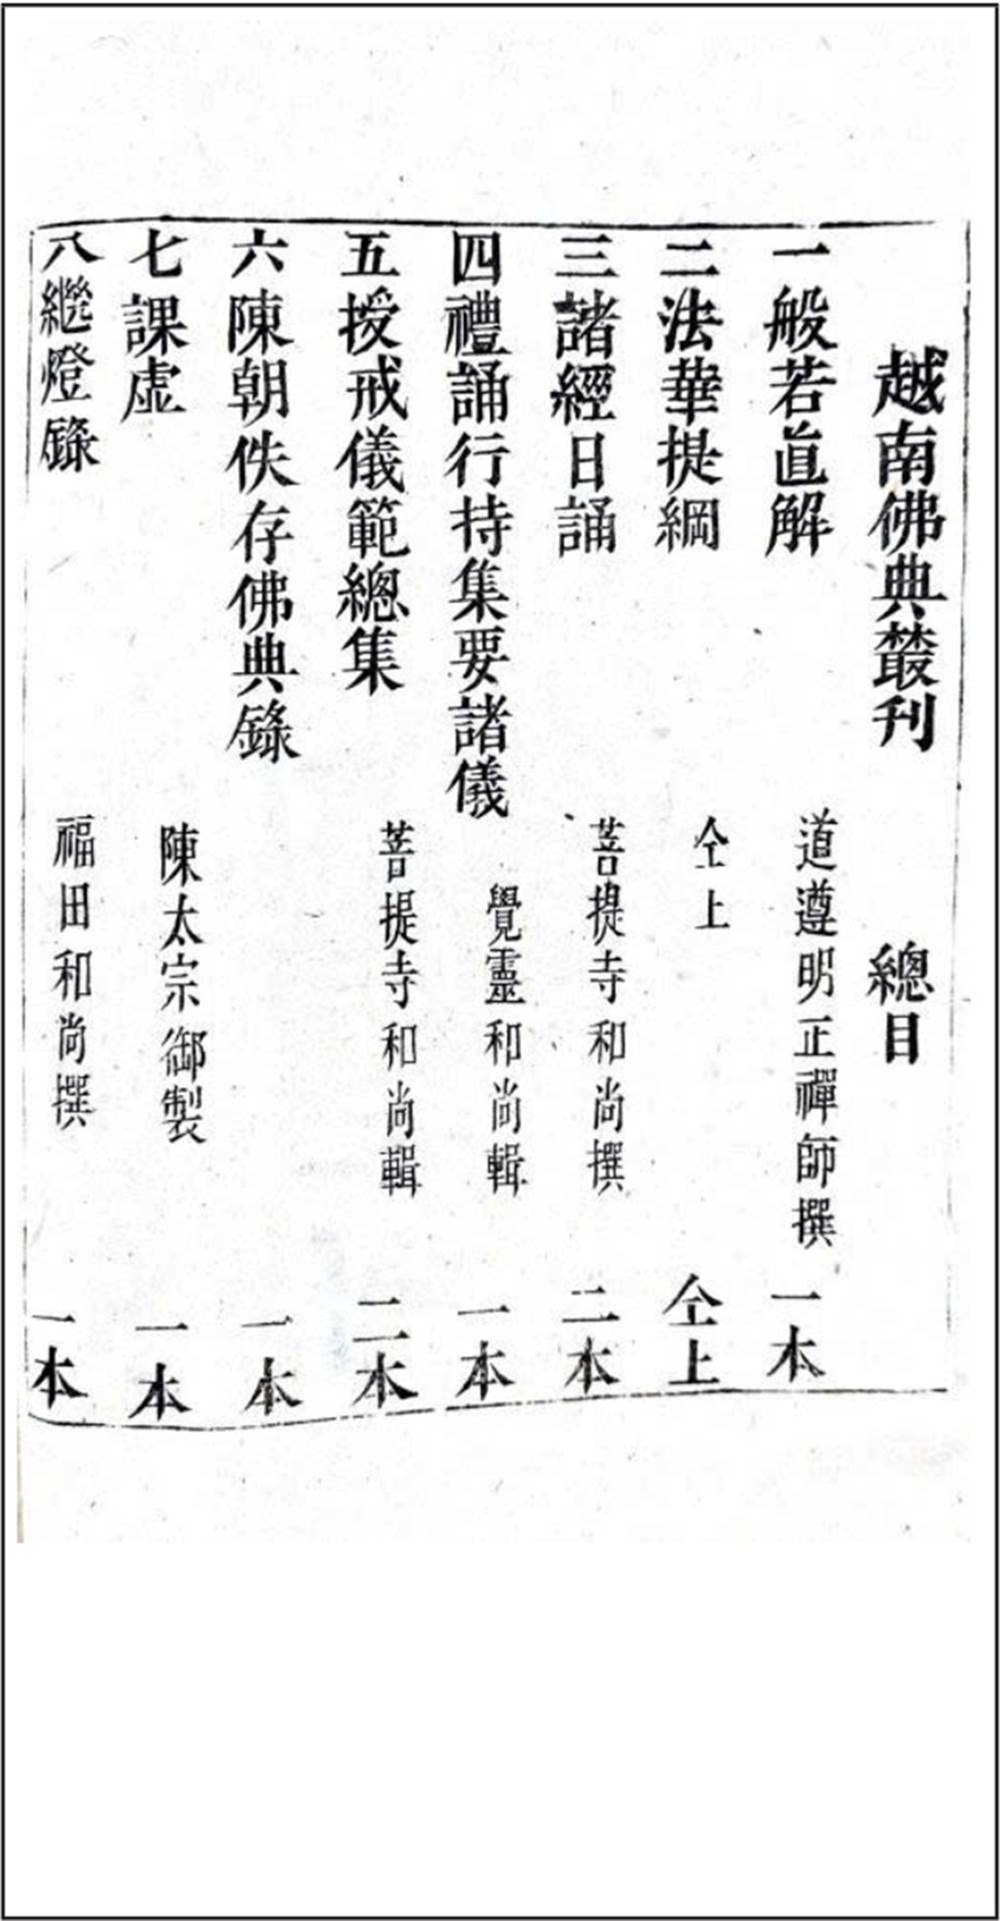 越南佛典叢刊 總目
一般若直解 道遵明正禪師撰 一本
二法華提綱 仝上 仝上
三諸經日誦 菩提寺和尚撰 二本
四禮誦行持集要諸儀 覺靈和尚輯 一本
五授戒儀範總集 菩提寺和尚輯 二本
六陳朝佚存佛典錄 一本
七課虛 陳太宗御製 一本
八繼燈錄 福田和尚撰 一本